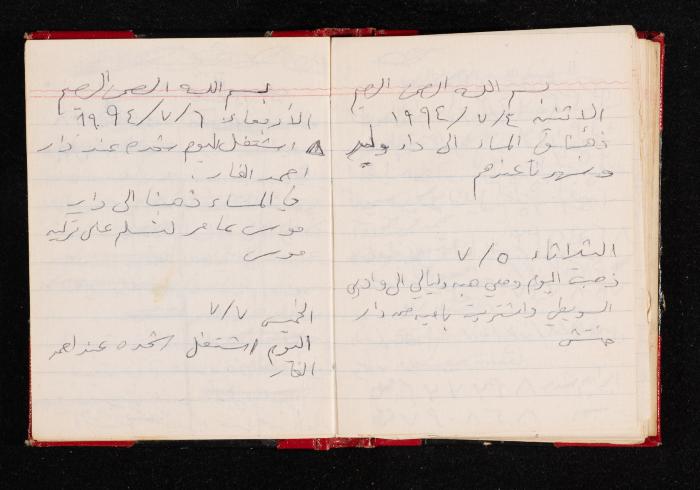 بسم الله الرحمن الرحيم
الاثنين ١٩٩٤/٧/٤
ذهبنا في المساء الى دار وليد
وسهرنا عندهم
الثلاثاء ٧/٥
ذهبت اليوم ومعي هبه وليالي الى وادي
السويطي واشتريت باميه من دار
حنتش
بسم الله الرحمن الرحيم
الأربعاء ١٩٩٤/٧/٦
اشتغل اليوم شحده عند دار
احمد الفار.
في المساء ذهبنا الى دار
موسى عامر لنسلم على تركيه
موسى
الخميس ٧/٧
اليوم اشتغل شحده عند احمد
الفار